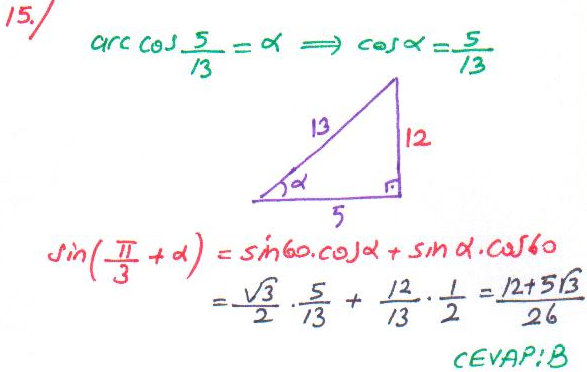 15./
arc cos 5/13 = α ⟹ cos α = 5/13
13
12
α
5
sin(π/3 + α) = sin60.cosα + sin α.cos60
= √3/2 . 5/13 + 12/13 . 1/2 = 12+5√3/26
CEVAP: B